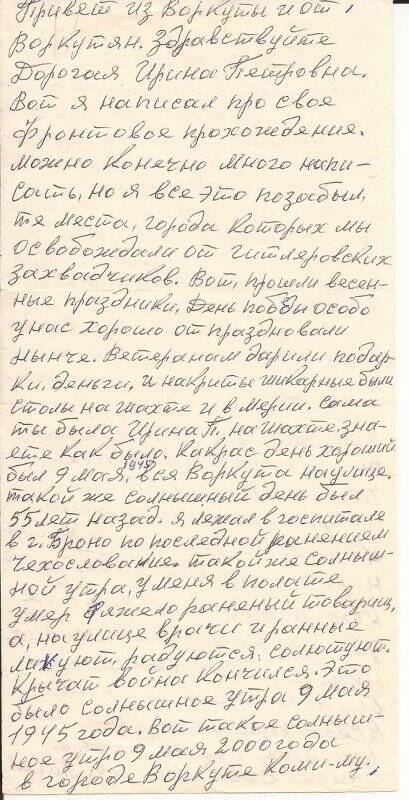 Привет из Воркуты и от
Воркутян. Здравствуйте
Дорогая Ирина Петровна.
Вот я написал про свое
фронтовое прохождение.
Можно конечно много напи-
сать, но я все это позабыл,
те места, города которых мы
освобождали от гитлеровских
захвадчиков. Вот, прошли весен-
ные праздники, День победы особо
у нас хорошо от праздновали
нынче. Ветеранам дарили подар-
ки, деньги, и накрыты шикарные были
столы на шахте и в мерии. Сама
ты была Ирина П, на шахте зна-
ете как было. Какрас день хороший
был 9 мая, вся Воркута на улице.
1945
такой же солнышный день был
55 лет назад. я лежал в госпитале
в г. Броно по последной ранением
Чехословакие. такой же солныш-
ной утра, у меня в полате
умер тяжело раненый товарищ,
а, на улице врачи и ранные
ликуют, радуются, солютуют.
Крычат война кончился. Это
было солнышное утра 9 мая
1945 года. Вот такое солныш-
ное утро 9 мая 2000 года
в городе Воркуте Коми-му.